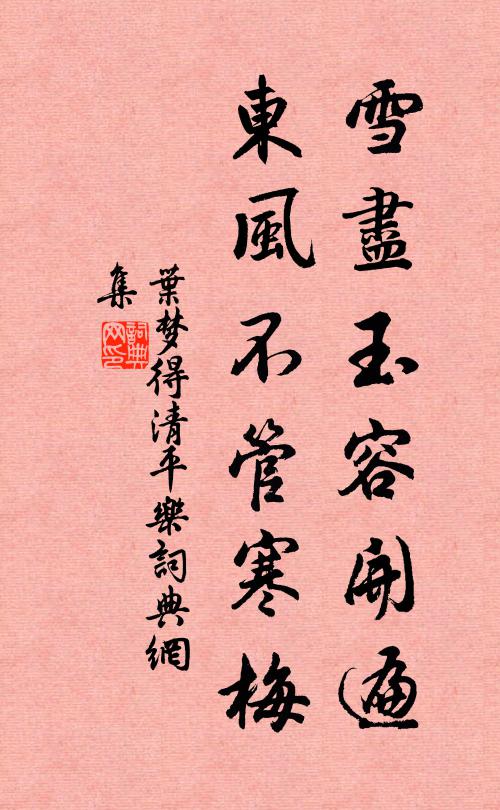 雪盡玉容開遍
東風不管寒梅
葉梦得清平樂詞典網
集
詞典
网印